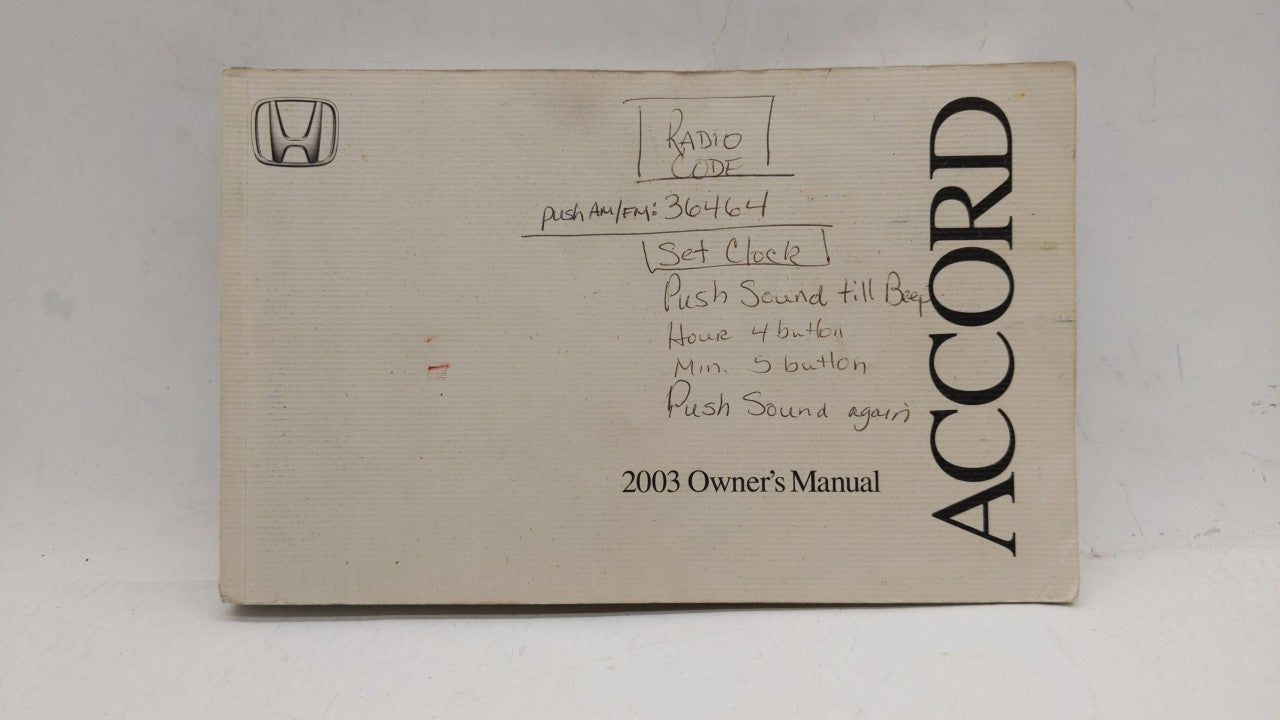 RADIO
CODE
push AM/FM: 36464
Set Clock
Push Sound till Beep
Hour 4 button
Min. 5 button
Push Sound again
2003 Owner's Manual
ACCORD